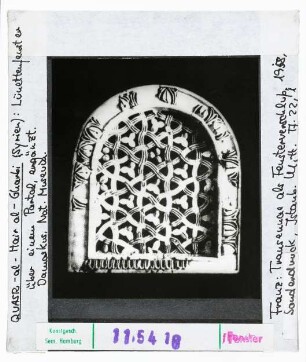 QUASR-al-Hair al-Gharbi (Syrien): Lünettenfenster
über einem Portal, ergänzt.
Damaskus, Nat. Museum
Franz: Transennae als Fensterverschluß, 1958,
Sonderdruck, Istanb. Mitt. Tf. 22,1
Kunstgesch.
Sem. Hamburg
11.54 18
Fenster